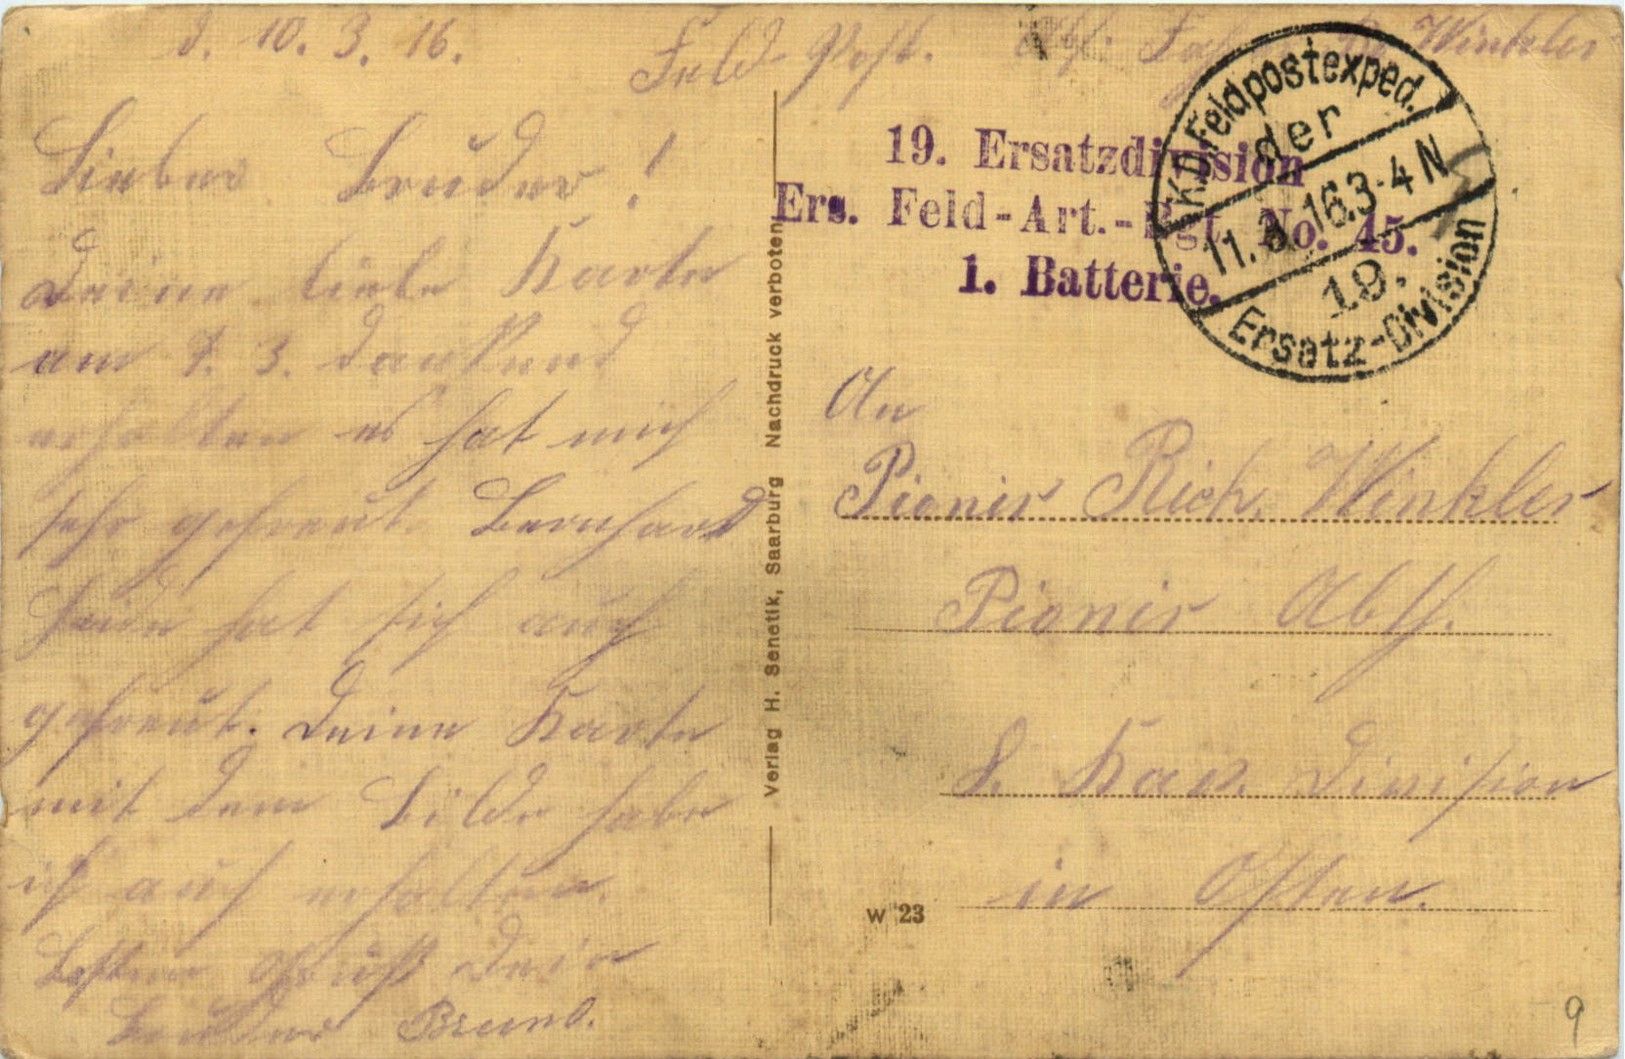 d. 10. 3. 16.
Feld-Post. Abs: Winkler
Lieber Bruder!
Deine liebe Karte
am 7. 3. dankend
erhalten es hat mich
sehr gefreut. Bernhard
hat sich auch
gefreut. Deine Karte
mit dem Bilde habe
ich auch erhalten.
Besten Gruß Dein
Bruder Bruno.
Verlag H. Senetik, Saarburg Nachdruck verboten.
W 23
19. Ersatzdivision
Ers. Feld-Art.-Rgt. No. 45.
1. Batterie.
K.D. Feldpostexped.
der
11. 3. 16. 3-4 N
19.
Ersatz-Division
An
Pionir Rich. Winkler
Pionir Abth.
8. Kav. Division
in Osten.
9